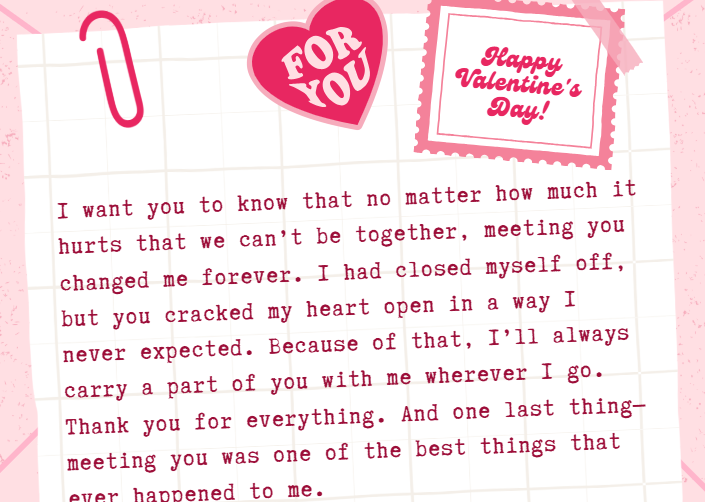 FOR
YOU
Happy
Valentine's
Day!
I want you to know that no matter how much it
hurts that we can't be together, meeting you
changed me forever. I had closed myself off,
but you cracked my heart open in a way I
never expected. Because of that, I'll always
carry a part of you with me wherever I go.
Thank you for everything. And one last thing—
meeting you was one of the best things that
ever happened to me.